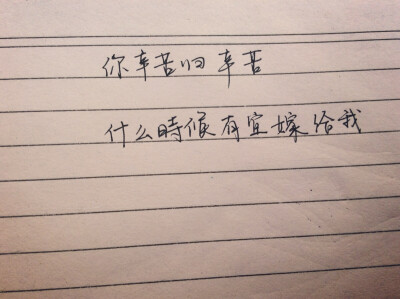 你辛苦归辛苦
什么時候有宜嫁给我